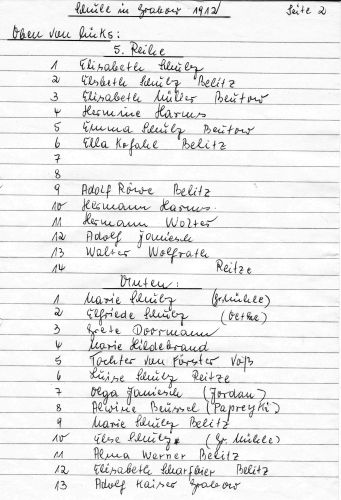 Schule in Grabow 1912 Seite 2
Oben von links:
5. Reihe
1 Elisabeth Schulz
2 Elsbeth Schulz Belitz
3 Elisabeth Müller Beutow
4 Hermine Harms
5 Emma Schulz Beutow
6 Ella Kofahl Belitz
7
8
9 Adolf Röwe Belitz
10 Hermann Harms
11 Hermann Wolter
12 Adolf Janiesch
13 Walter Wolfrath
14 Reitze
Unten:
1 Marie Schulz (Gr Mühle)
2 Elfriede Schulz
3 Grete Doormann
4 Marie Hildebrand
5 Tochter von Förster Voß
6 Luise Schulz Reitze
7 Olga Janiesch (Jordan)
8 Alwine Beussel
9 Marie Schulz Belitz
10 Else Schulz (Gr Mühle)
11 Alma Werner Belitz
12 Elisabeth Belitz
13 Adolf Kaiser Grabow